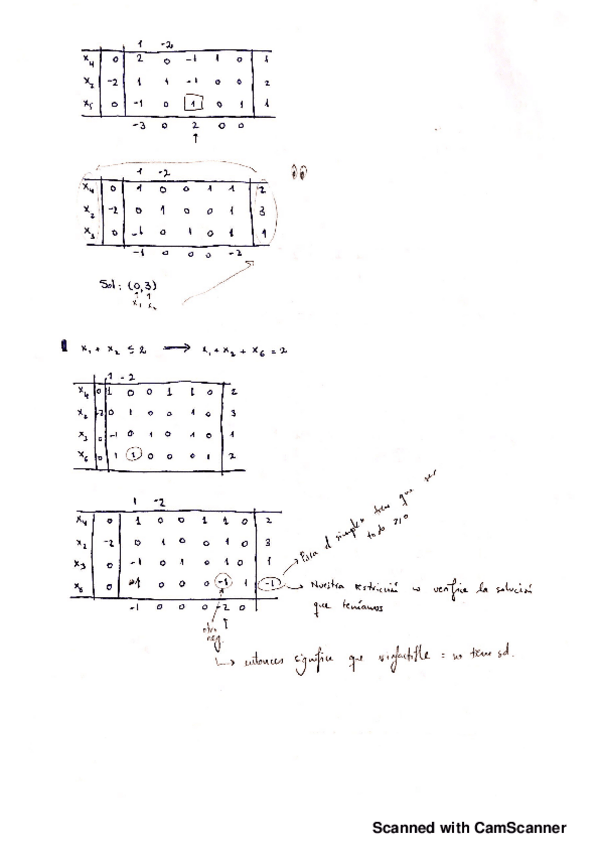 1 -2
x4 0 2 0 -1 1 0 1
x2 -2 1 1 -1 0 0 2
x5 0 -1 0 1 0 1 1
-3 0 2 0 0
↑
1 -2
x4 0 1 0 0 1 1 2
x2 -2 0 1 0 0 1 3
x3 0 -1 0 1 0 1 1
-1 0 0 0 -2
Sol: (0,3)
↑ ↑
x1 x2
x1 + x2 ≤ 2 → x1 + x2 + x6 = 2
1 -2
x4 0 1 0 0 1 1 0 2
x2 -2 0 1 0 0 1 0 3
x3 0 -1 0 1 0 1 0 1
x6 0 1 1 0 0 0 1 2
1 -2
x4 0 1 0 0 1 1 0 2
x2 -2 0 1 0 0 1 0 3
x3 0 -1 0 1 0 1 0 1
x6 0 1 0 0 0 -1 1 -1
-1 0 0 0 -2 0
Para el simplex tiene que ser
todo ≥0
Nuestra restricción no verifica la solución
que teníamos
neg.
↳ entonces significa que = no tiene sol.
Scanned with CamScanner